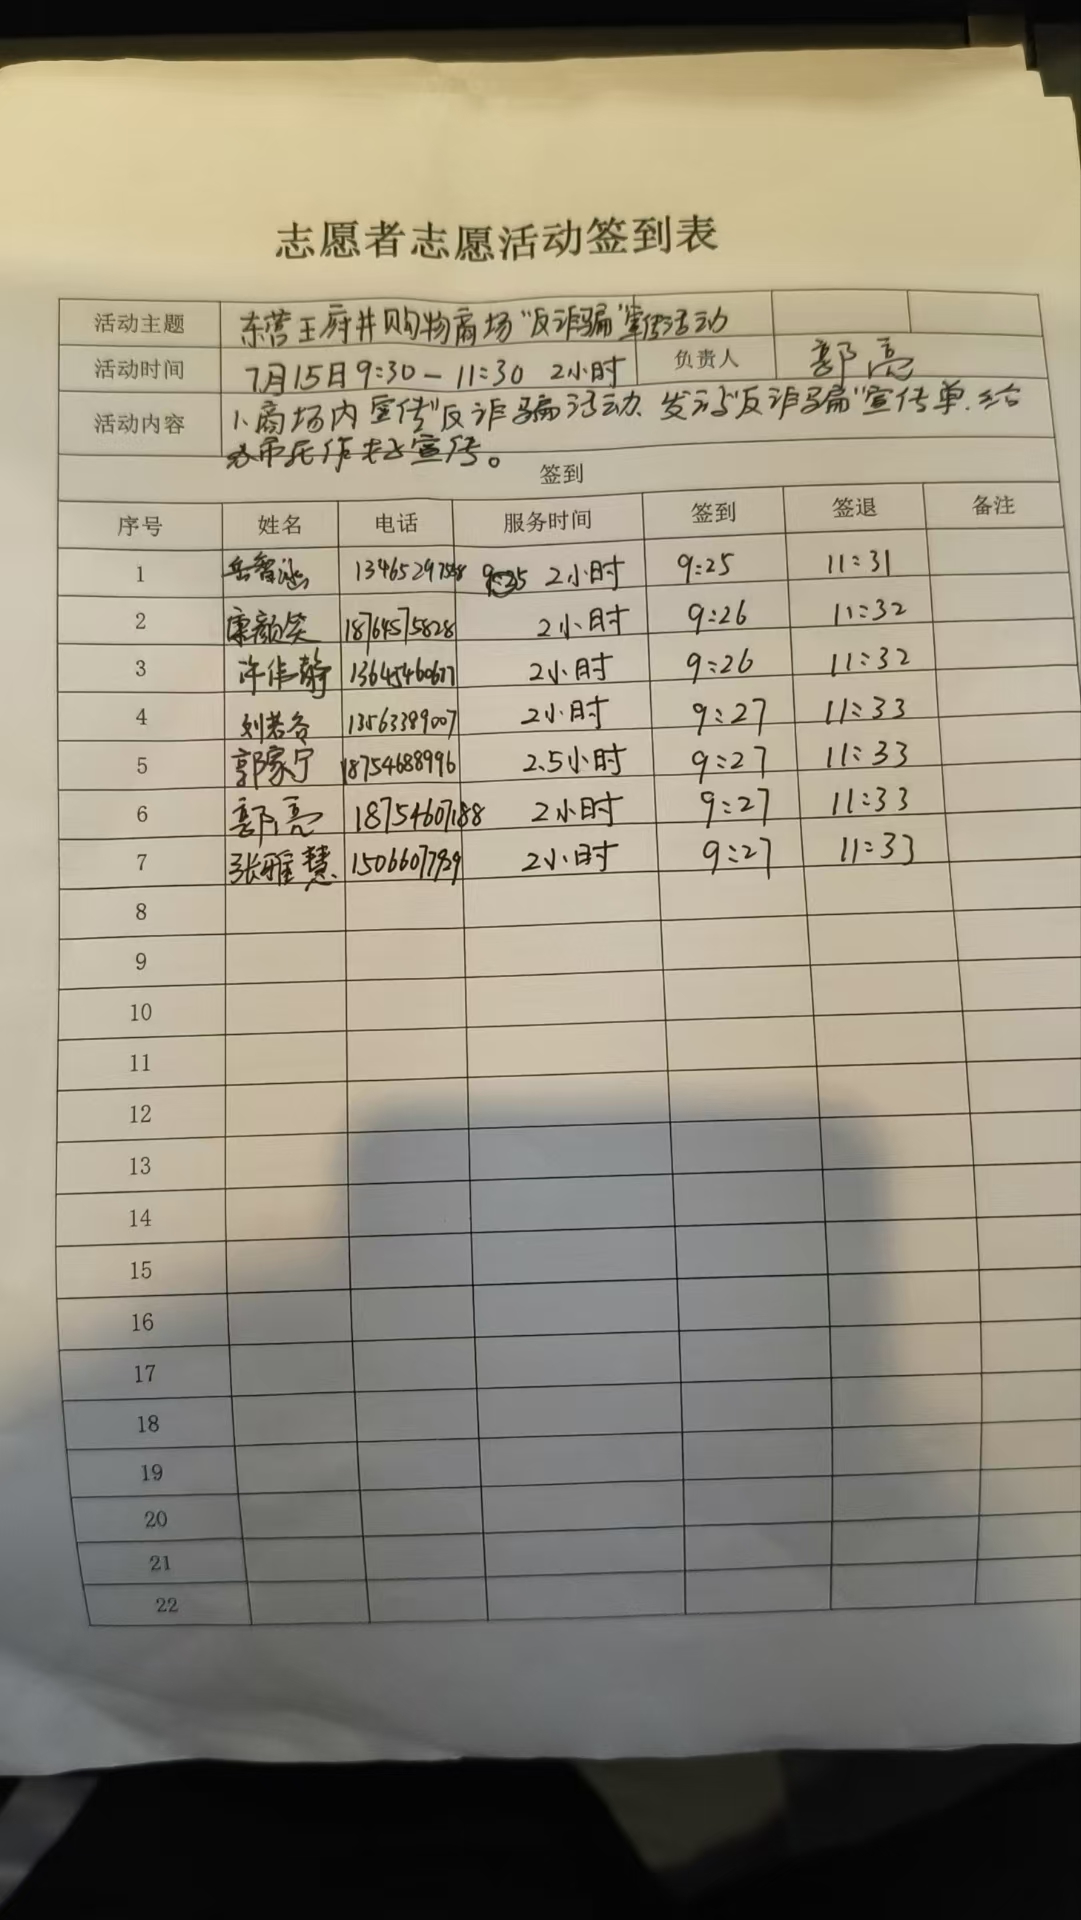 志愿者志愿活动签到表
活动主题 东营王府井购物商场"反诈骗"宣传活动
活动时间 7月15日9:30-11:30 2小时 负责人 郭亮
活动内容 1、商场内宣传"反诈骗活动、发放"反诈骗"宣传单.给
市民作 宣传。
签到
序号 姓名 电话 服务时间 签到 签退 备注
1 岳智涵 2小时 9:25 11:31
2 康颜笑 18764575828 2小时 9:26 11:32
3 许佳静 13645460677 2小时 9:26 11:32
4 刘若谷 13563389007 2小时 9:27 11:33
5 郭家宁 18754688996 2.5小时 9:27 11:33
6 郭亮 18754607188 2小时 9:27 11:33
7 张雅慧 2小时 9:27 11:33
8
9
10
11
12
13
14
15
16
17
18
19
20
21
22